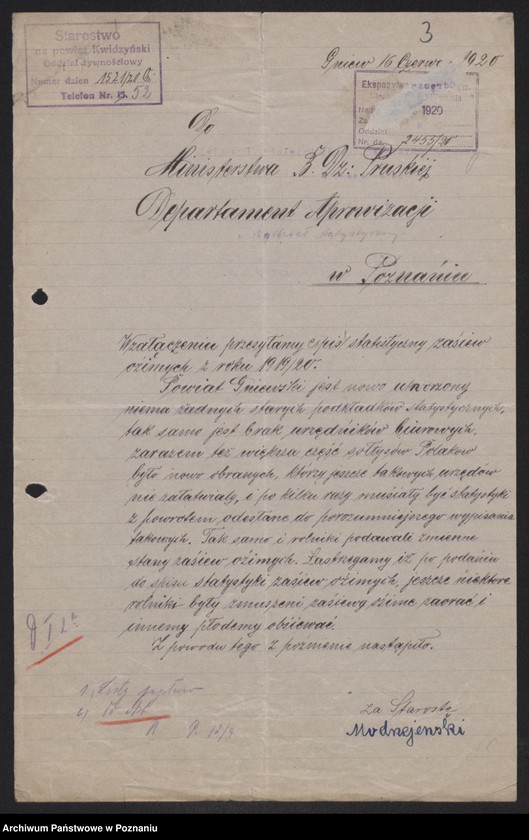 3
Starostwo
na powiat Kwidzyński
Oddział żywnościowy
Numer dzien 1521/20
Telefon Nr. 13. 52
Gniew 16 Czerw 1920
Ekspozy
1920
Oddział
Nr. dz. 2453/
Do
Ministerstwa B. Dz: Pruskiéj
Departament Aprowizacji
w Poznaniu
Wzałączeniu przesyłamy spis statistyczny zasiew
oźimych z roku 1919/20.
Powiat Gniewski jest nowo utworzony
niema żadnych starych podkładków statystycznych,
tak samo jest brak urzędników biurowych,
zarazem też większa część sołtysów Polaków
było nowo obranych, którzy jeszcze takowych urzędów
nie załatwiały, i po kilku razy musiały być statystyki
z powrotem odesłane do porozumniejszego wypisania
takowych. Tak samo i rolniki podawali zmienne
stany zasiew oźimych. Zastrzegamy iż po podaniu
do spisu statystyki zasiew oźimych, jeszcze niektore
rolniki były zmuszeni zasiewy oźime zaorać i
innemy płodemy obsiewać.
Z powodu tego z późnienie nastąpiło.
za Starostę
Modrzejenski
Archiwum Państwowe w Poznaniu